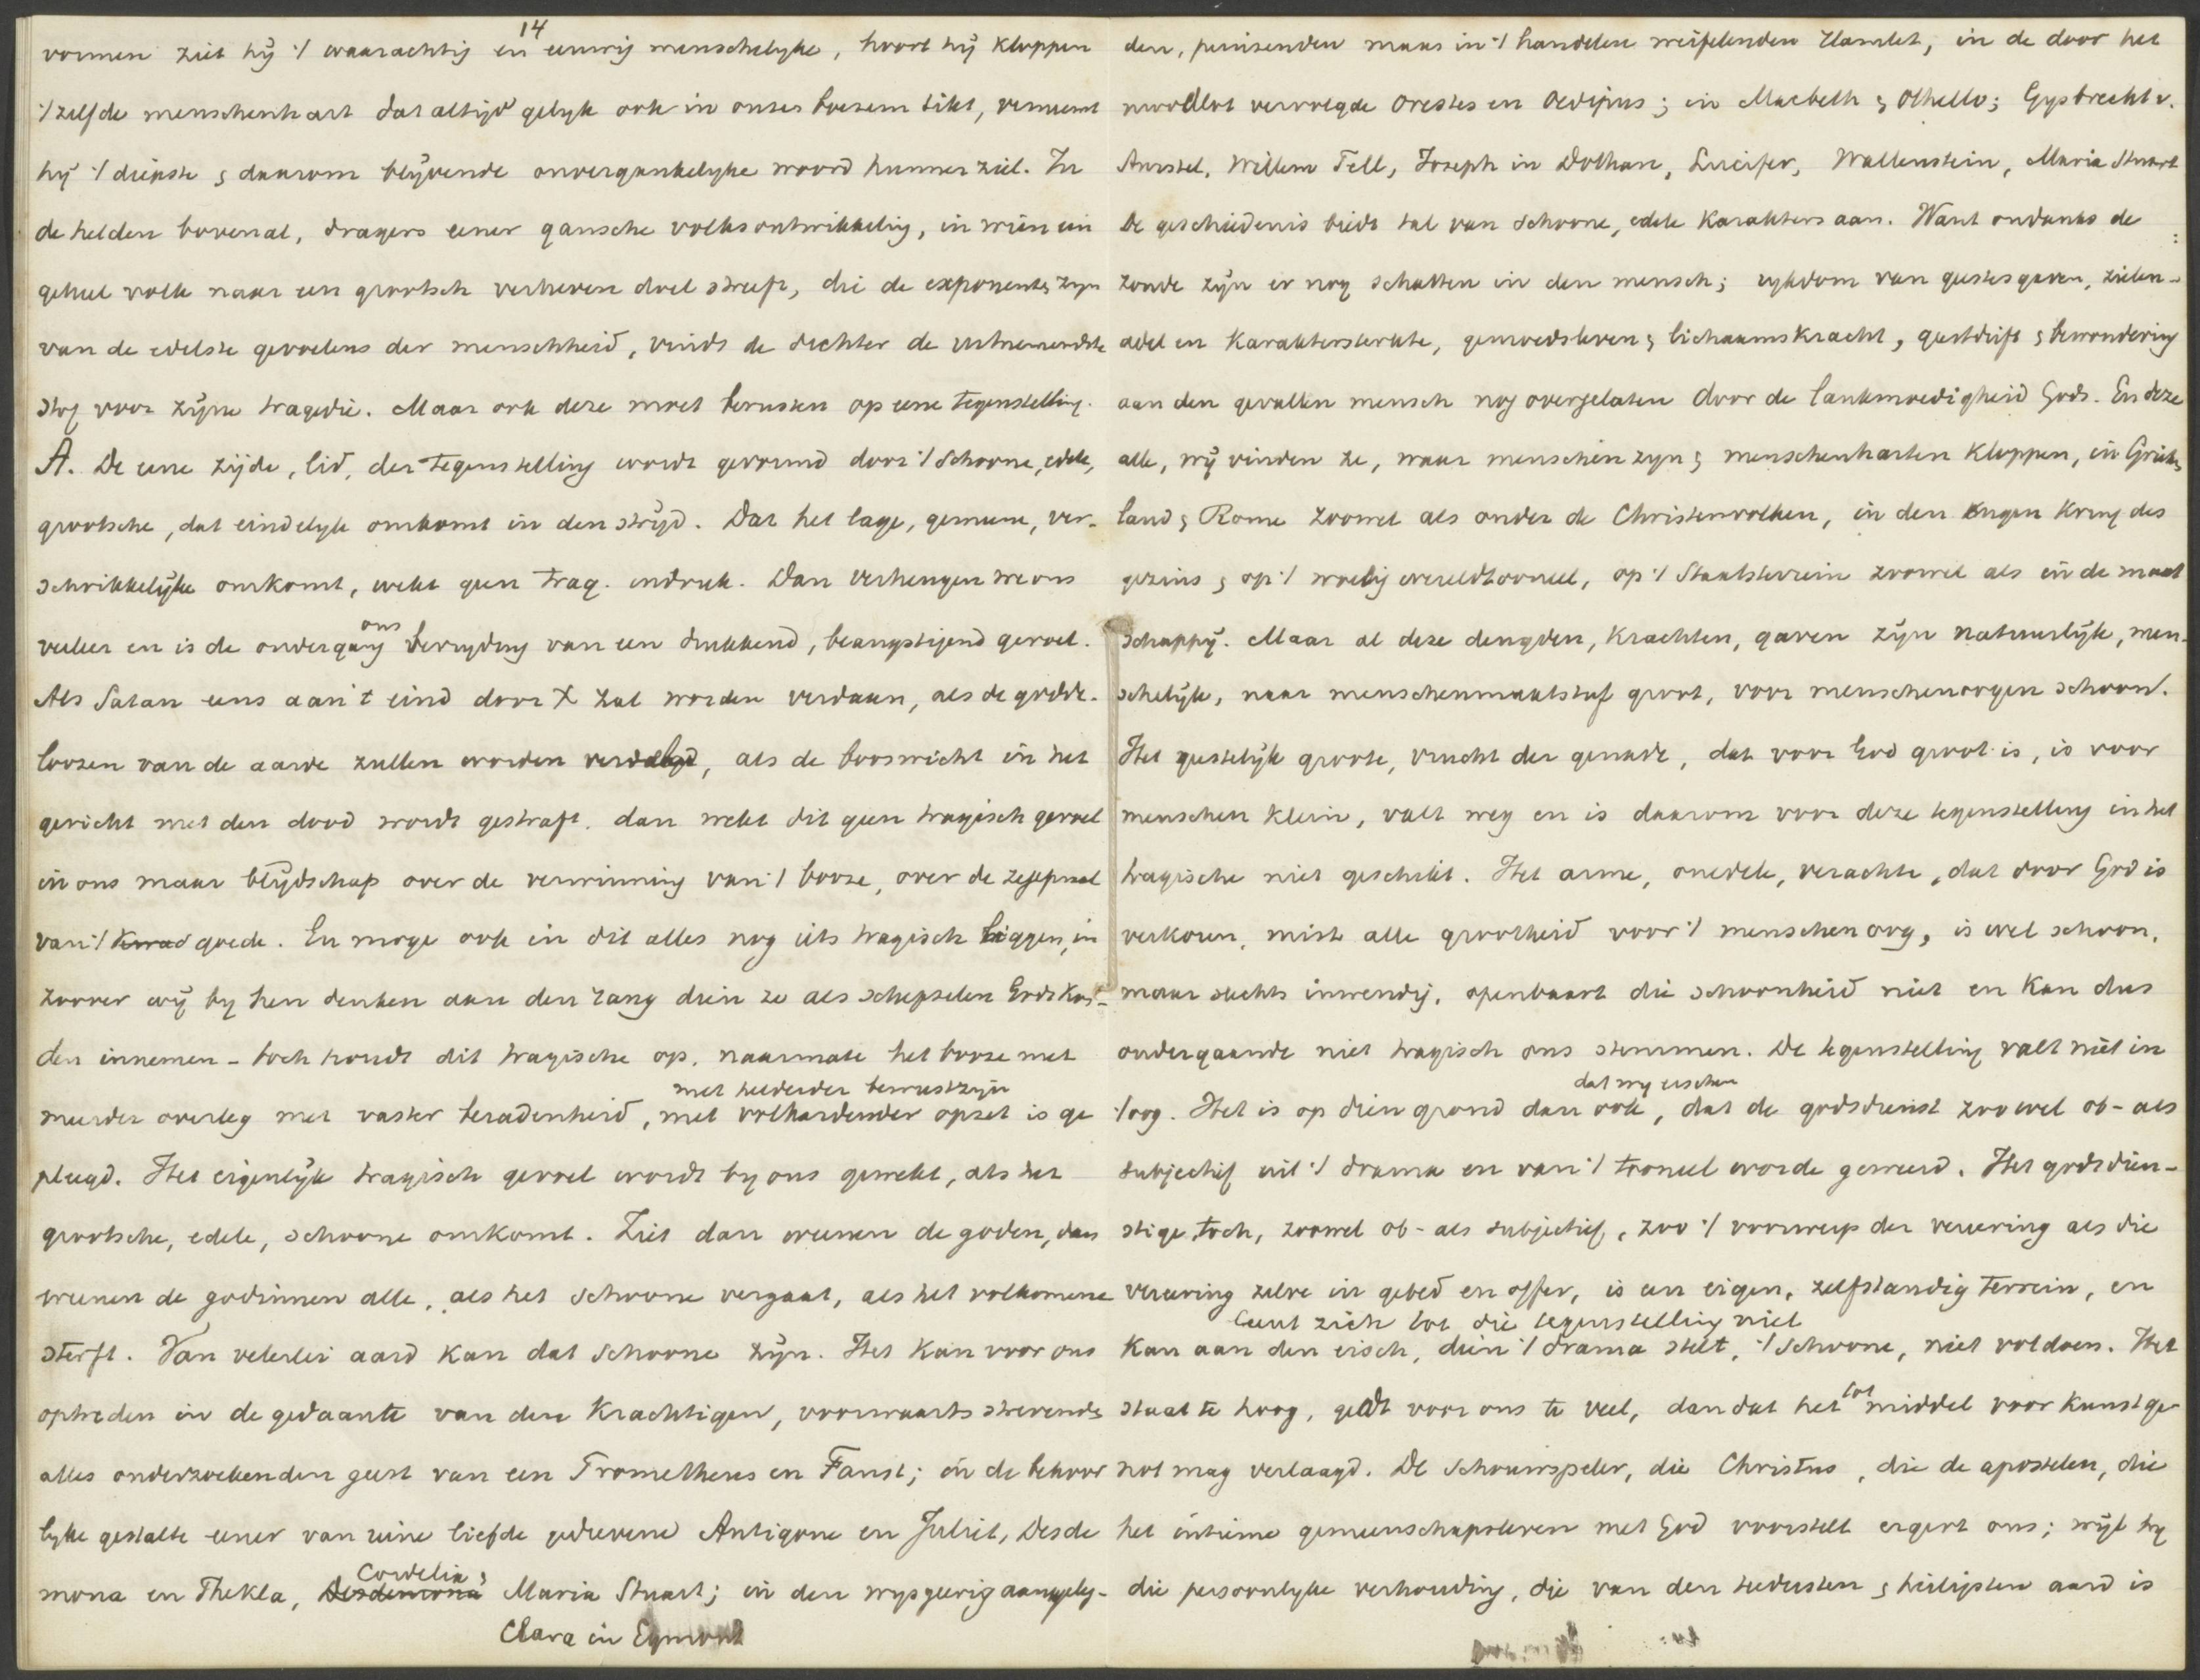 14
vormen ziet hij 't waarachtig en eeuwig menschelijke, hoort hij kloppen
't zelfde menschenhart dat altijd gelijk ook in onzen boezem tikt, verneemt
hij 't diepste & daarom blijvende onvergankelijke woord hunner ziel. In
de helden bovenal, dragers eener gansche volksontwikkeling, in wien een
geheel volk naar een grootsch verheven doel streeft, die de exponenten zijn
van de edelste gevoelens der menschheid, vindt de dichter de uitnemendste
stof voor zijne tragedie. Maar ook deze moet berusten op eene tegenstelling.
A. De eene zijde, lid, der tegenstelling wordt gevormd door 't schoone, edele,
grootsche, dat eindelijk omkomt in den strijd. Dat het lage, gemeene, ver-
schrikkelijke omkomt, wekt geen trag. indruk. Dan verheugen we ons
veeleer en is de ondergang ons bevrijding van een drukkend, beangstigend gevoel.
Als Satan eens aan 't eind door X zal worden verdaan, als de godde-
loozen van de aarde zullen worden verdelgd, als de booswicht in het
gericht met den dood wordt gestraft, dan wekt dit geen tragisch gevoel
in ons maar blijdschap over de verwinning van 't booze, over de zegepraal
van 't kwad goede. En moge ook in dit alles nog iets tragisch liggen, in
zoover wij bij hen denken aan den rang dien ze als schepselen Gods kon-
den innemen - toch houdt dit tragische op, naarmate het booze met
meerder overleg met vaster beradenheid, met helderder bewustzijn met volhardender opzet is ge
pleegd. Het eigenlijk tragisch gevoel wordt bij ons gewekt, als het
grootsche, edele, schoone omkomt. Ziet dan weenen de goden, dan
weenen de godinnen alle, als het schoone vergaat, als het volkomene
sterft. Van velerlei aard kan dat schoone zijn. Het kan voor ons
optreden in de gedaante van den krachtigen, voorwaarts strevenden
alles onderzoekenden geest van een Prometheus en Faust; in de bekoor
lijke gestalte eener van reine liefde gedrevene Antigone en Juliet, Desde
mona en Thekla, Desdemona Cordelia, Maria Stuart; in den wijsgeerig aangeleg-
Clara in Egmont
den, peinzenden maar in 't handelen weifelenden Hamlet, in de door het
noodlot vervolgde Orestes en Oedipus; in Macbeth & Othello; Gysbrecht v.
Amstel, Willem Tell, Joseph in Dothan, Lucifer, Wallenstein, Maria Stuart
De geschiedenis biedt tal van schoone, edele karakters aan. Want ondanks de
zonde zijn er nog schatten in den mensch; rijkdom van geestesgaven, zielen-
adel en karaktersterkte, gemoedsleven & lichaamskracht, geestdrift & bewondering
aan den gevallen mensch nog overgelaten door de lankmoedigheid Gods. En deze
alle, wij vinden ze, waar menschen zijn & menschenharten kloppen, in Grieken
land & Rome zoowel als onder de Christenvolken, in den engen kring des
gezins & op 't woelig wereldtooneel, op 't Staatsterrein zoowel als in de maat
schappij. Maar al deze deugden, krachten, gaven zijn natuurlijk, men-
schelijk, naar menschenmaatstaf groot, voor menschenoogen schoon.
Het geestelijk groote, vrucht der genade, dat voor God groot is, is voor
menschen klein, valt weg en is daarom voor deze tegenstelling in het
tragische niet geschikt. Het arme, onedele, verachte, dat door God is
verkoren, mist alle grootheid voor 't menschenoog, is wel schoon,
maar slechts inwendig, openbaart die schoonheid niet en kan dus
ondergaande niet tragisch ons stemmen. De tegenstelling valt niet in
't oog. Het is op dien grond dan ook, dat wij eischen dat de godsdienst zoowel ob- als
subjectief uit 't drama en van 't tooneel worde geweerd. Het godsdien-
stige toch, zoowel ob- als subjectief, zoo 't voorwerp der vereering als die
vereering zelve in gebed en offer, is een eigen, zelfstandig terrein, en
leent zich tot die tegenstelling niet
kan aan den eisch, dien 't drama stelt, 't schoone, niet voldoen. Het
staat te hoog, geldt voor ons te veel, dan dat het tot middel voor kunstge-
not mag verlaagd. De schouwspeler, die Christus, die de apostelen, die
het intieme gemeenschapsleven met God voorstelt ergert ons; wijl hij
die persoonlijke verhouding, die van den teedersten & heiligsten aard is